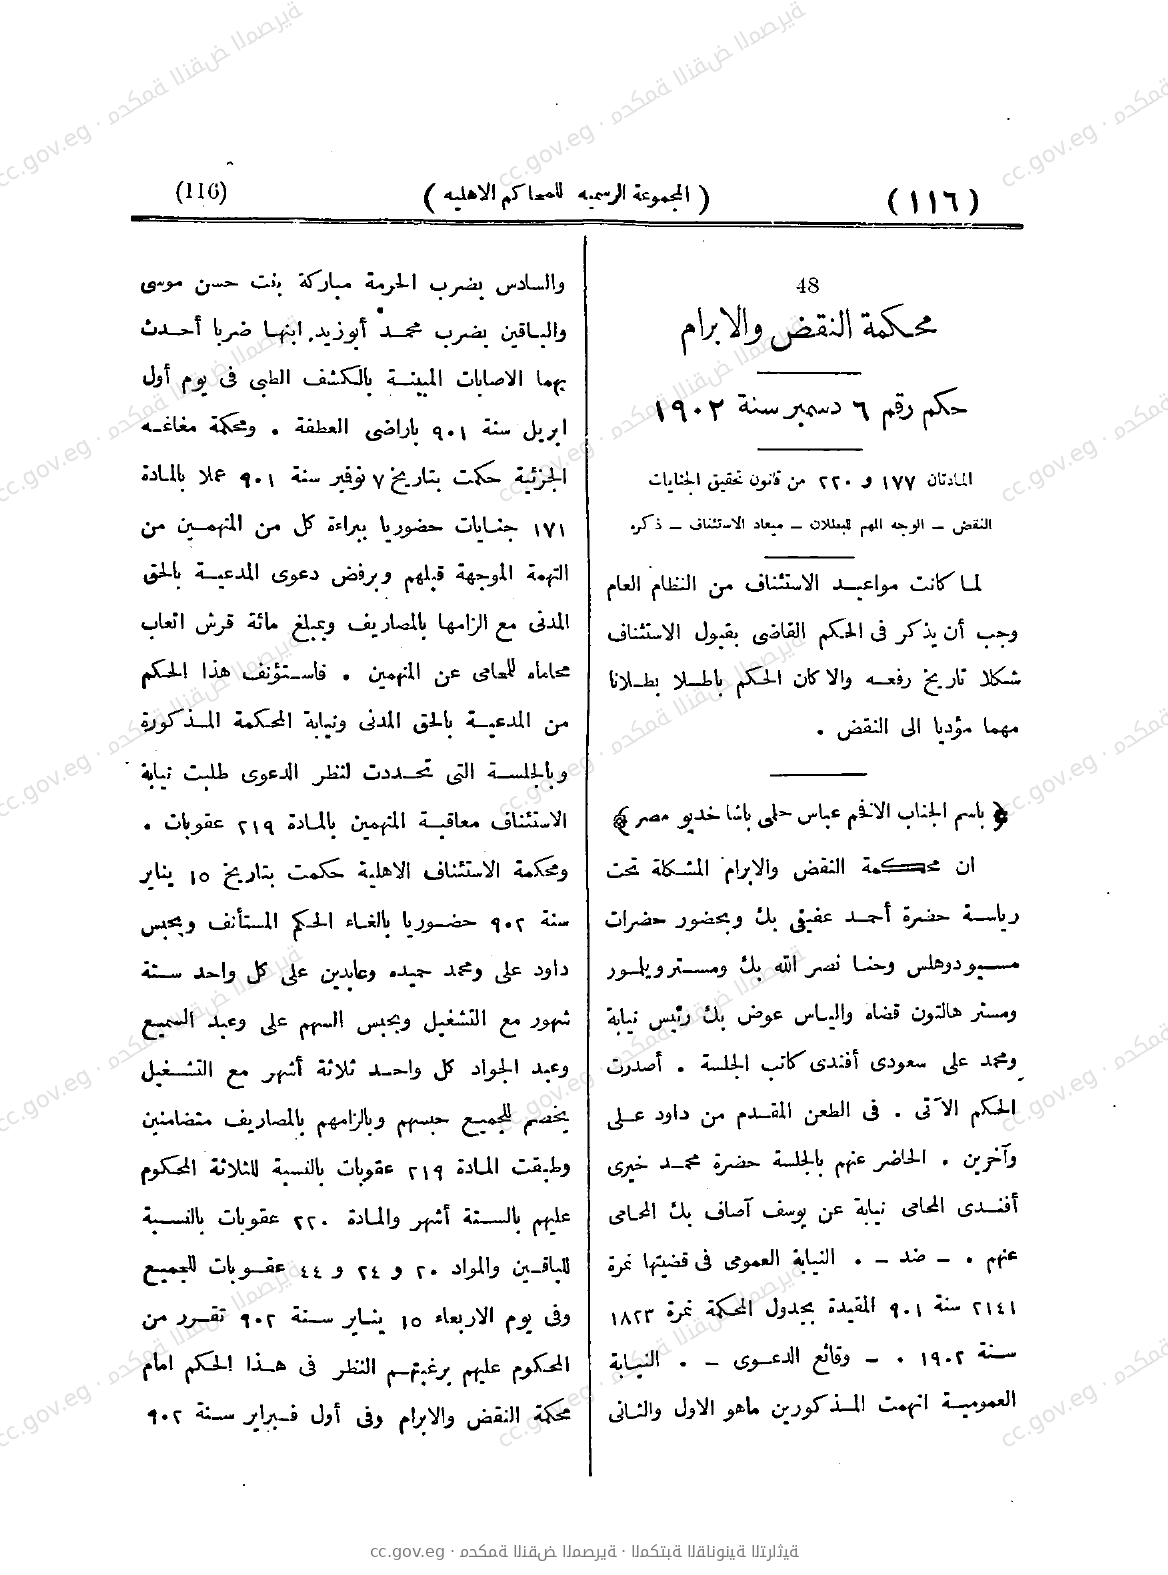 (١١٦)
( المجموعة الرسميه للمحاكم الاهليه )
(116)
48
محكمة النقض والابرام
حكم رقم ٦ دسمبر سنة ١٩٠٢
المادتان ١٧٧ و ٢٢٠ من قانون تحقيق الجنايات
النقض – الوجه المهم للبطلان – ميعاد الاستئناف – ذكره
لما كانت مواعيد الاستئناف من النظام العام
وجب أن يذكر فى الحكم القاضى بقبول الاستئناف
شكلا تاريخ رفعه والا كان الحكم باطلا بطلانا
مهما مؤديا الى النقض .
﴿ باسم الجناب الافخم عباس حلمى باشا خديو مصر ﴾
ان محكمة النقض والابرام المشكلة تحت
رياسة حضرة أحمد عفيفى بك وبحضور حضرات
مسيو دوهلس وحنا نصر الله بك ومستر ويلمور
ومستر هالتون قضاه والياس عوض بك رئيس نيابة
ومحمد على سعودى أفندى كاتب الجلسة . أصدرت
الحكم الآتى . فى الطعن المقدم من داود على
وآخرين . الحاضر عنهم بالجلسة حضرة محمد خيرى
أفندى المحامى نيابة عن يوسف آصاف بك المحامى
عنهم . – ضد – . النيابة العمومى فى قضيتها نمرة
٢١٤١ سنة ٩٠١ المقيدة بجدول المحكمة نمرة ١٨٢٣
سنة ١٩٠٢ . – وقائع الدعوى – . النيابة
العمومية اتهمت المذكورين ماهو الاول والثانى
والسادس بضرب الحرمة مباركة بنت حسن موسى
والباقين بضرب محمد أبوزيد ابنها ضربا أحدث
بهما الاصابات المبينة بالكشف الطبى فى يوم أول
ابريل سنة ٩٠١ باراضى العطفة . ومحكمة مغاغه
الجزئية حكمت بتاريخ ٧ نوفبر سنة ٩٠١ عملا بالمادة
١٧١ جنايات حضوريا ببراءة كل من المتهمين من
التهمة الموجهة قبلهم وبرفض دعوى المدعية بالحق
المدنى مع الزامها بالمصاريف وبمبلغ مائة قرش اتعاب
محاماه للمحامى عن المتهمين . فاستؤنف هذا الحكم
من المدعية بالحق المدنى ونيابة المحكمة المذكورة
وبالجلسة التى تحددت لنظر الدعوى طلبت نيابة
الاستئناف معاقبة المتهمين بالمادة ٢١٩ عقوبات .
ومحكمة الاستئناف الاهلية حكمت بتاريخ ١٥ يناير
سنة ٩٠٢ حضوريا بالغاء الحكم المستأنف وبحبس
داود على ومحمد حميده وعابدين على كل واحد ستة
شهور مع التشغيل وبحبس السهم على وعبد السميع
وعبد الجواد كل واحد ثلاثة أشهر مع التشغيل
يخصم للجميع حبسهم وبالزامهم بالمصاريف متضامنين
وطبقت المادة ٢١٩ عقوبات بالنسبة للثلاثة المحكوم
عليهم بالستة أشهر والمادة ٢٢٠ عقوبات بالنسبة
للباقين والمواد ٢٠ و ٢٤ و ٤٤ عقوبات للجميع
وفى يوم الاربعاء ١٥ يناير سنة ٩٠٢ تقرر من
المحكوم عليهم برغبتهم النظر فى هذا الحكم امام
محكمة النقض والابرام وفى أول فبراير سنة ٩٠٢
cc.gov.eg · محكمة النقض المصرية · المكتبة القانونية التراثية